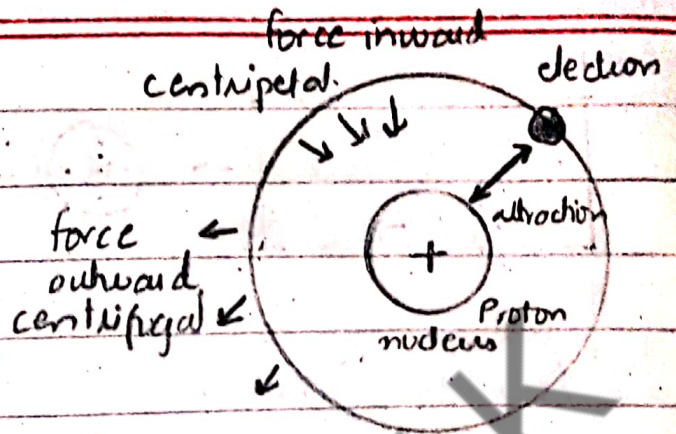 force inward
centripetal.
electron
attraction
force
outward
centrifugal
+
Proton
nucleus
K